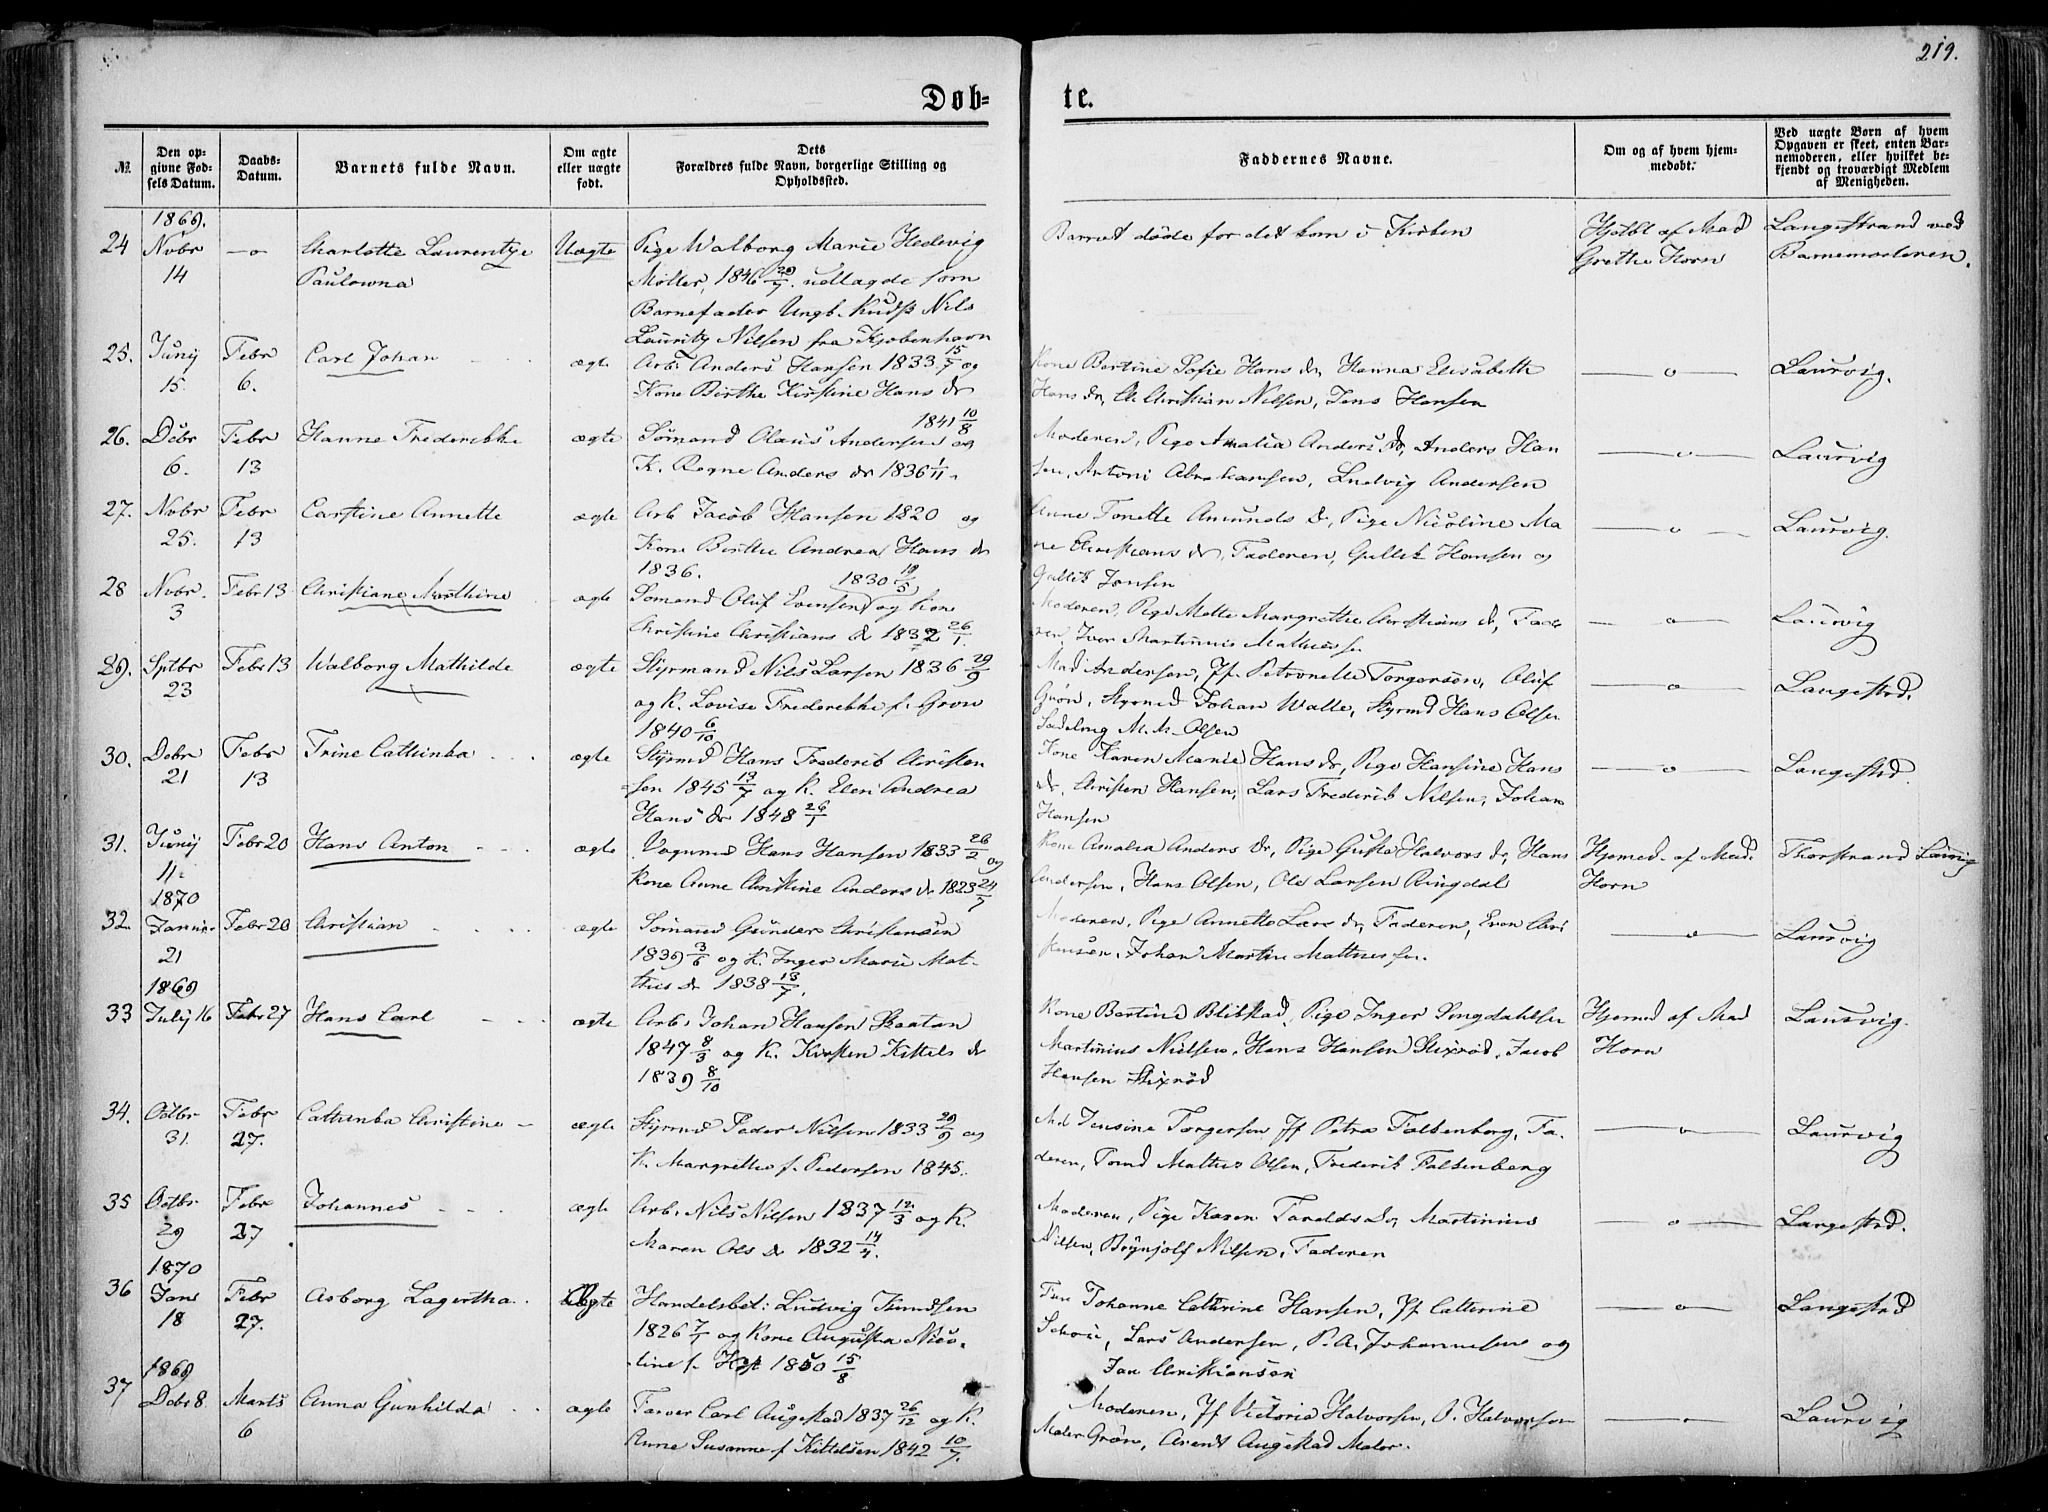 219.
Døb=
te.
№
Den op-
givne Fød-
sels Datum.
Daabs-
Datum.
Barnets fulde Navn.
Om ægte
eller uægte
født.
Dets
Forældres fulde Navn, borgerlige Stilling og
Opholdssted.
Faddernes Navne.
Om og af hvem hjem-
medøbt.
Ved uægte Børn af hvem
Opgaven er skeet, enten Bar-
nemoderen, eller hvilket be-
kjendt og troværdigt Medlem
af Menigheden.
1869.
24 Nvbr —o— Charlotte Laurentze Uægte Pige Walborg Marie Hedevig
14 Paulowna Møller, 1846 29/7. udlagde som
Barnefader Ungk. Nils
Lauritz Nilsen fra Kjøbenhavn
Barnet døde før det kom i Kirken
Hjdbt af Mad
Grethe Horn
Langestrand ved
Barnemoderen.
25. Juny Febr Carl Johan ægte Arb. Anders Hansen 1833 15/7 og
15. 6. Kone Birthe Kirstine Hans dr
1841 10/8
Kone Bertine Sofie Hans dr, Hanna Elisabeth
Hans dr, Christian Nilsen, Jens Hansen
—o— Laurvig.
26. Debr Febr Hanne Frederikke ægte Sømand Olaus Andersen og
6. 13 K. Regne Anders dr 1836 1/11.
Moderen, Pige Amalia Anders dr, Anders Han
sen, Antoni Abrahamsen, Ludvig Andersen
—o— Laurvig
27. Nvbr Febr Carstine Annette ægte Arb Jacob Hansen 1820 og
25. 13 Kone Birthe Andrea Hans dr
1836.
Anne Tonette Amunds dr, Pige Nicoline Ma
rie Christians dr, Faderen, Gullik Hansen og
Gullik Jansen
—o— Laurvig.
28 Nvbr. Febr 13 Christiane Marthine ægte Sømand Oluf Evensen 1830 19/5 og Kone
3 Christine Christians dr 1832 26/1.
Moderen, Pige Mette Margrethe Christians dr, Fade
ren, Iver Martinius Mathiesse
—o— Laurvig
29. Sptbr Febr 13 Walborg Mathilde ægte Styrmand Nils Larsen 1836 29/9
23 og K. Lovise Frederikke f. Grøn
1840 6/10
Mad Andersen, Jf. Petronelle Torgersen, Oluf
Grøn, Styrmd Johan Walle, Styrmd Hans Olsen
M. M. Olsen
—o— Langestrd.
30. Debr Febr Trine Cathinka ægte Styrmd Hans Frederik Christen
21 13 =sen 1845 13/7 og K. Elen Andrea
Hans dr 1848 26/1
Kone Karen Marie Hans dr, Pige Hansine Hans
dr, Christen Hansen, Lars Frederik Nilsen, Johan
Hansen
—o— Langestrd.
31. Juny Febr 20 Hans Anton ægte Vognmd Hans Hansen 1833 26/2 og
11. Kone Anne Christine Anders dr 1823 24/7
Kone Amalia Anders dr, Pige Gusta Halvors dr, Hans
Andersen, Hans Olsen, Ole Larsen Ringdal
Hjemd. af Mad.
Horn
Thorstrand Laurvig
1870
32. Januar Febr 20 Christian ægte Sømand Gunder Christensen
21 1839 3/6 og K. Inger Marie Mat-
thies dr 1838 13/7.
Moderen, Pige Annette Lars dr, Faderen, Even Chri
stensen, Johan Martin Mathiesse.
—o— Laurvig
1869
33 July 16 Febr 27 Hans Carl ægte Arb. Johan Hansen Skaatan
1847 8/3 og K. Kirsten Kittels dr
1839 8/10
Kone Bertine Blikstad, Pige Inger Songdahlsen
Martinius Nielsen, Hans Hansen Stixrød, Jacob
Hansen Stixrød
Hjemd af Mad
Horn
Laurvig.
34. Octbr Febr Cathinka Christine ægte Styrmd Peder Nilsen 1833 29/9 og
31. 27. K. Margrethe f. Pedersen 1845.
Md Jensine Torgersen Jf Petra Falkenberg, Fa-
deren, Tømd Mathis Olsen, Frederik Falkenberg
—o— Laurvig
35 Octbr Febr Johannes ægte Arb. Nils Nilsen 1837 12/3 og K.
29 27 Maren Ols dr 1832 14/4.
Moderen, Pige Karen Taralds dr, Martinius
Nilsen, Brynjolf Nilsen, Faderen
—o— Langestrd.
1870
36 Janr Febr Asborg Lagertha Ægte Handelsbet: Ludvig Knudsen
18 27. 1826 7/1 og Kone Augusta Nico-
line f. 1850 15/8
Fru Johanne Cathrine Hansen, Jf Catherine
Lars Andersen, P. A. Johannesen og
Jan Christiansen
—o— Langestrd
1869
37 Debr 8 Marts Anna Gunhilda ægte Farver Carl Augestad 1837 26/12 og K.
6 Anne Susanne f Kittelsen 1842 10/7.
Moderen, Jf Victoria Halvorsen, O. Halvorsen
Maler Grøn, Arent Augestad Maler.
—o— Laurvig